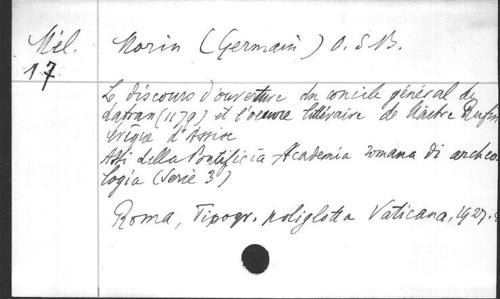 Mél. Morin (Germain) O. S. B.
17
Le discours d'ouverture du concile général de
Latran (1179) et l'oeuvre littéraire de Maître Rufin
évêque d'Assise
Atti della Pontificia Academia romana di archeo
logia (Serie 3)
Roma, Tipogr. poliglotta Vaticana, 1927.